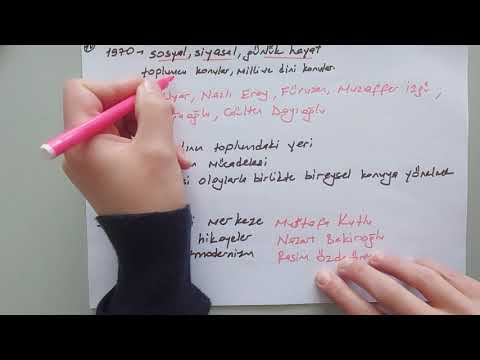 1970 → sosyal, siyasal, günlük hayat
toplumcu konular, milli ve dini konular
Nazlı Eray, Füruzan, Muzaffer İzgü,
Gülten Dayıoğlu
toplumdaki yeri
Mücadelesi
olaylarla birlikte bireysel konuya yönelmek
merkeze Mustafa Kutlu
hikayeler Nazan Bekiroğlu
modernizm Rasim